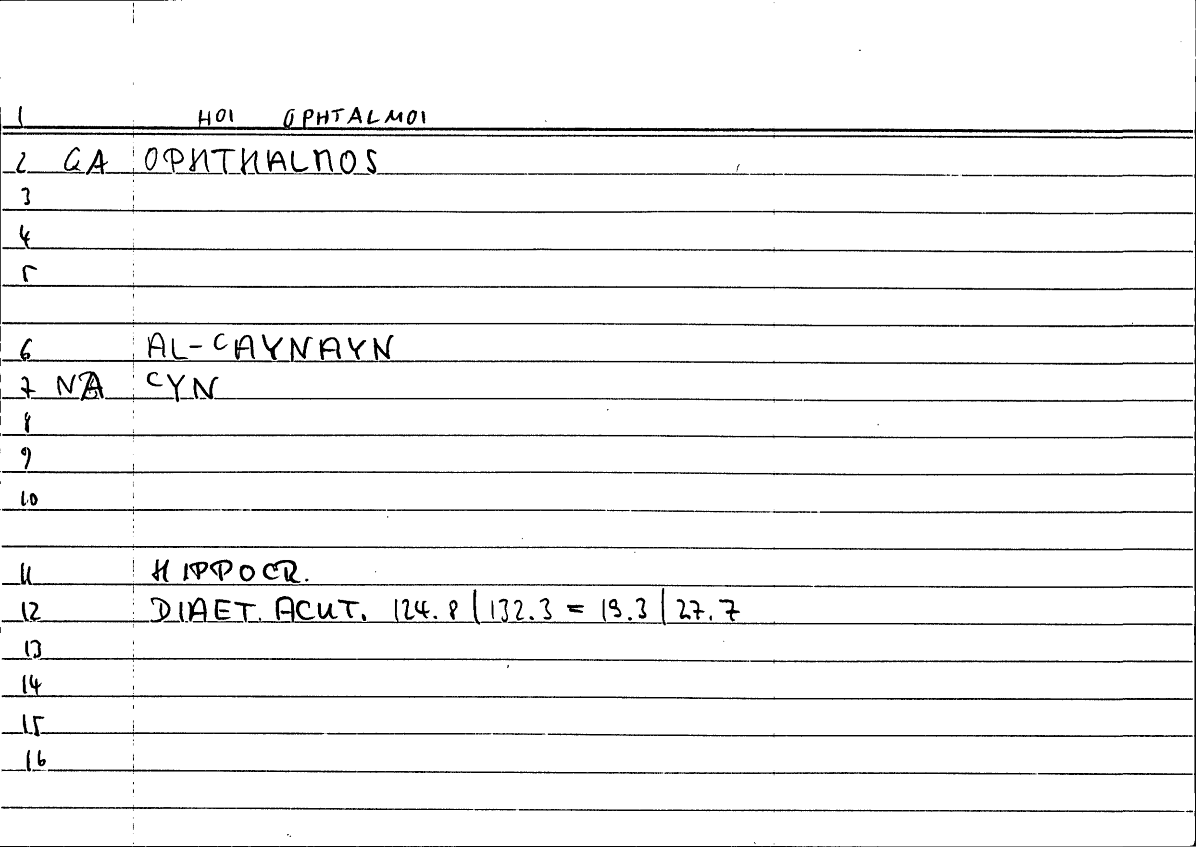 1 HOI OPHTALMOI
2 GA OPHTHALMOS
3
4
5
6 AL-ʿAYNAYN
7 NA ʿYN
8
9
10
11 HIPPOCR.
12 DIAET. ACUT. 124.8 | 132.3 = 19.3 | 27.7
13
14
15
16